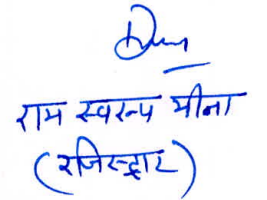 राम स्वरूप मीना
(रजिस्ट्रार)